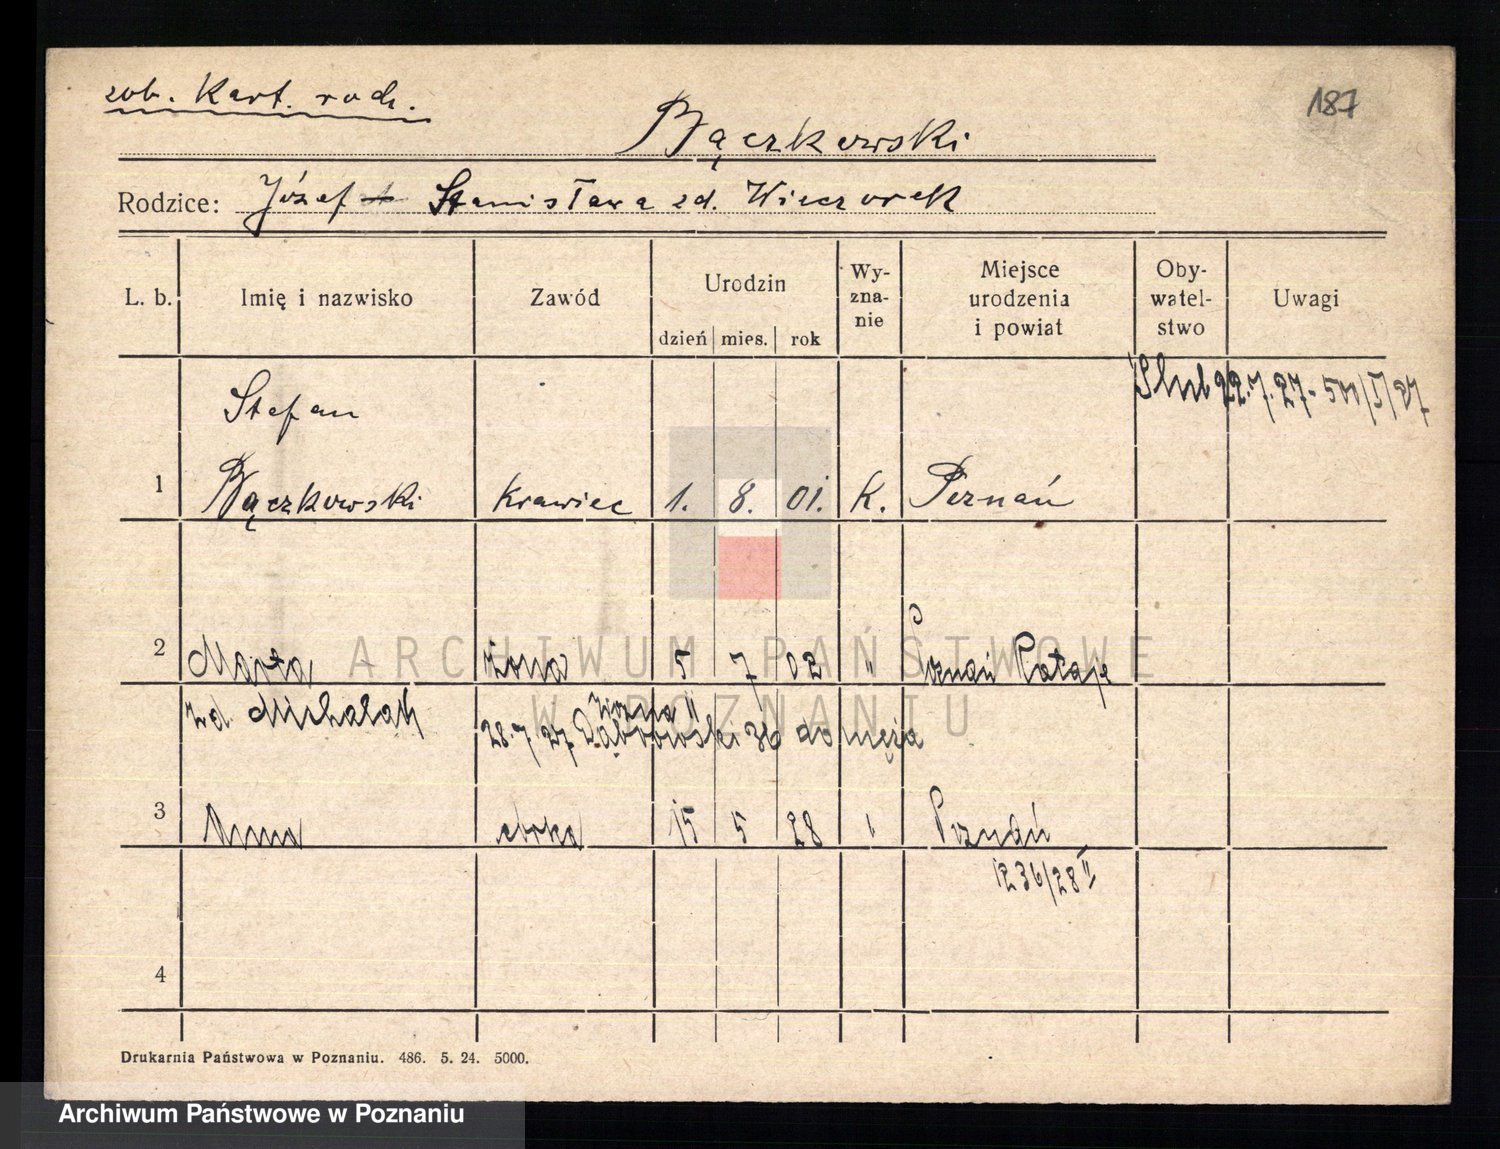 zob. Kart. rodz.
187
Bączkowski
Rodzice: Józef Stanisława zd. Wieczorek
L. b. Imię i nazwisko Zawód Urodzin dzień mies. rok Wy-zna-nie Miejsce urodzenia i powiat Oby-watel-stwo Uwagi
Ślub 22.7.27 - 501/I/27
Stefan
1 Bączkowski Krawiec 1. 8. 01. K. Poznań
2 Marta żona 5 7 02 " Poznań Rataje
zd. Michalak
28.7.27 Dąbrowski 36 do męża
3 córka 15 5 28 Poznań
1236/28 II
4
Drukarnia Państwowa w Poznaniu. 486. 5. 24. 5000.
ARCHIWUM PAŃSTWOWE
W POZNANIU
Archiwum Państwowe w Poznaniu